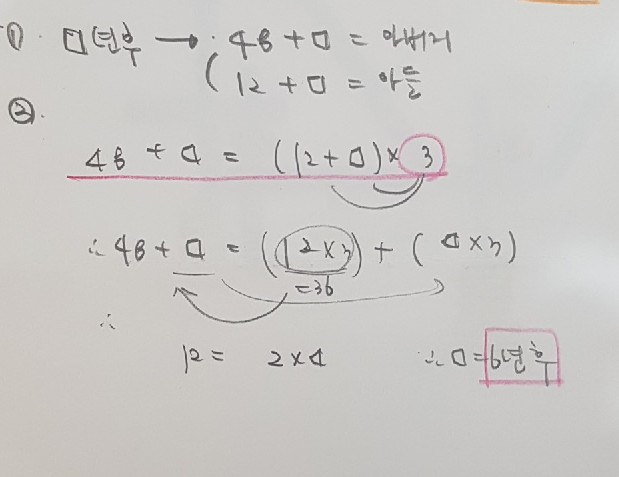 ① □년후 → 48 + □ = 아버지
( 12 + □ = 아들
②.
48 + □ = (12 + □) × 3
∴ 48 + □ = (12 × 3) + (□ × 3)
= 36
∴
12 = 2 × □ ∴ □ = 6년후